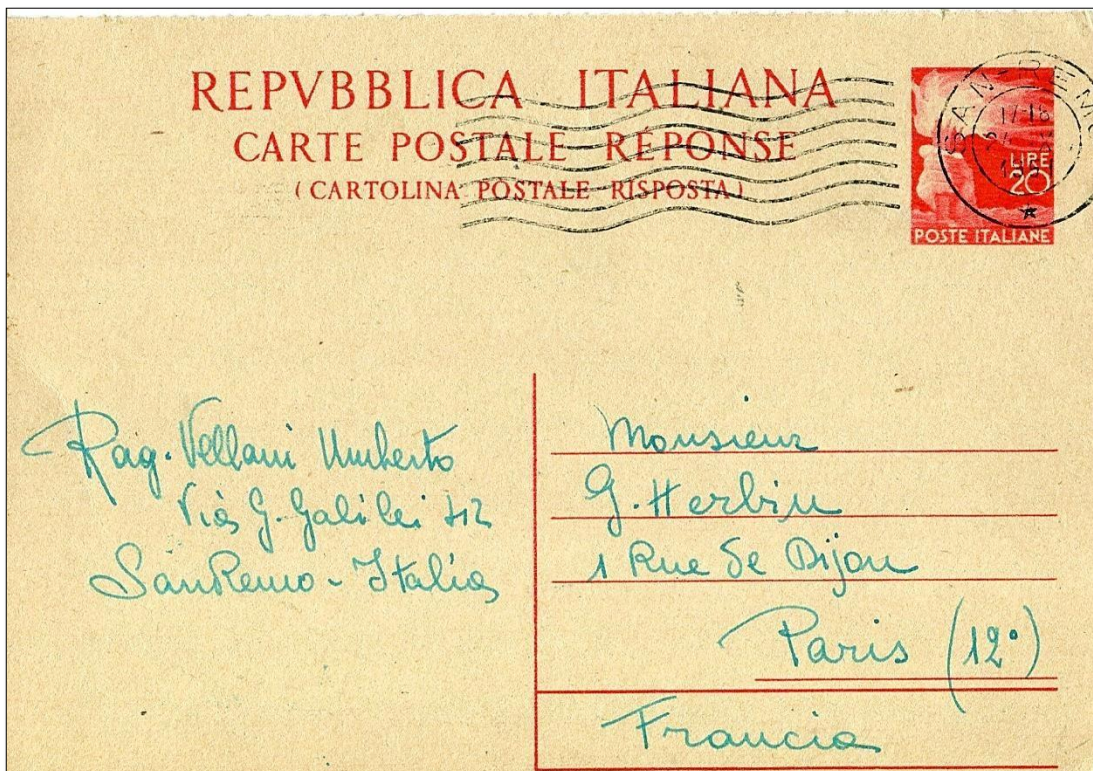 REPVBBLICA ITALIANA
CARTE POSTALE RÉPONSE
(CARTOLINA POSTALE RISPOSTA)
SAN-REMO
17-18
LIRE
20
POSTE ITALIANE
Rag. Vellani Umberto
Via G. Galilei 412
SanRemo - Italia
Monsieur
G. Herbin
1 Rue de Dijon
Paris (12°)
Francia